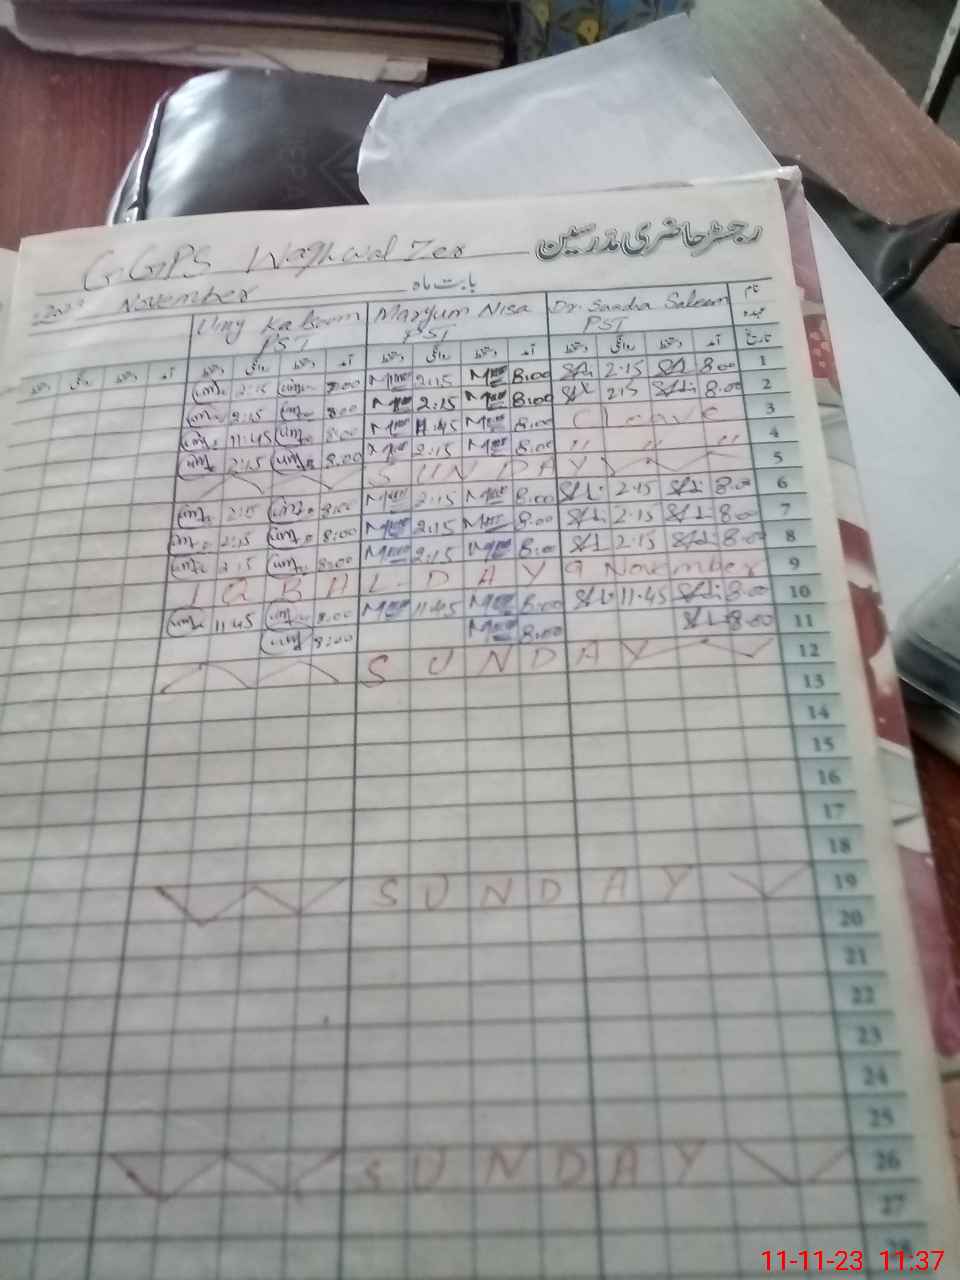 رجسٹر حاضری مدرسین
GGPS Waghwal Zer
بابت ماہ November
نام Dr. Saadia Saleem Maryum Nisa Umy Kalsoom
عہدہ PST PST PST
تاریخ آمد دستخط روانگی دستخط آمد دستخط روانگی دستخط آمد دستخط روانگی دستخط
1 8.00 2.15 8.00 2:15 8:00 2:15
2 8.00 2.15 8:00 2:15 8:00 2:15
3 C leave 8:00 11:45 8:00 11:45
4 " " " 8:00 2:15 8:00 2:15
5 SUNDAY
6 8.00 2.15 8:00 2:15 8:00 2:15
7 8.00 2.15 8:00 2:15 8:00 2:15
8 8.00 2.15 8:00 2:15 8:00 2:15
9 IQBAL DAY 9 November
10 8.00 11.45 8:00 11:45 8:00 11:45
11 8.00 8:00 8:00
12 SUNDAY
13
14
15
16
17
18
19 SUNDAY
20
21
22
23
24
25
26 SUNDAY
27
28
11-11-23 11:37